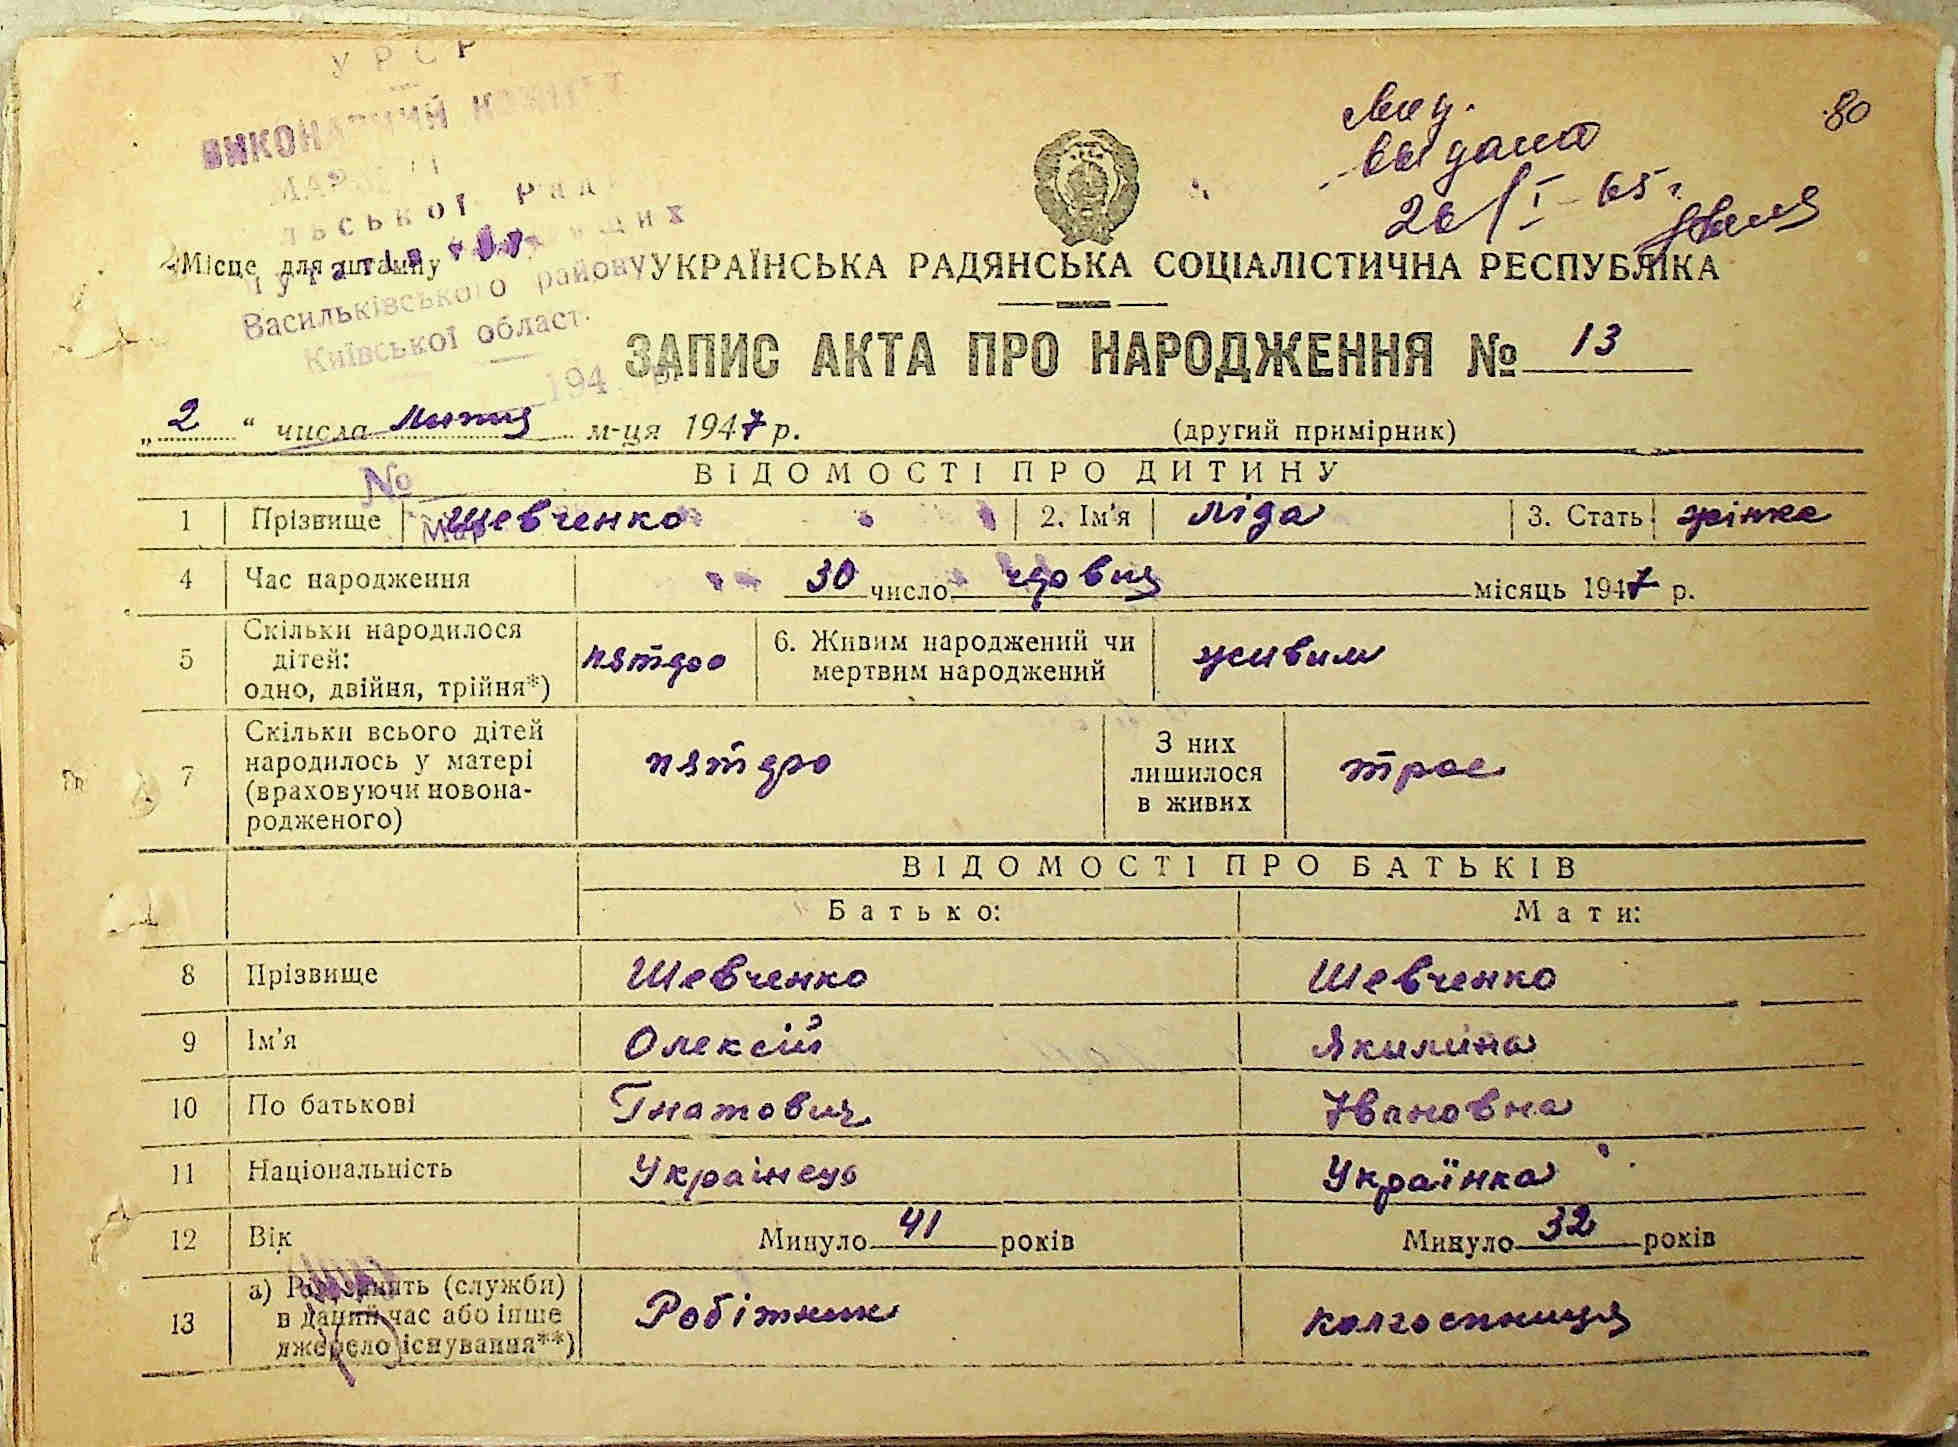 УРСР
ВИКОНАВЧИЙ КОМІТЕТ
Васильківського району
Київської област.
194 р.
№
80
выдана
26/I-65 г.
Місце для штампу
УКРАЇНСЬКА РАДЯНСЬКА СОЦІАЛІСТИЧНА РЕСПУБЛІКА
ЗАПИС АКТА ПРО НАРОДЖЕННЯ № 13
„ 2 “ числа м-ця 1947 р. (другий примірник)
ВІДОМОСТІ ПРО ДИТИНУ
1 Прізвище Шевченко 2. Ім'я Ліда 3. Стать жінка
4 Час народження 30 число місяць 1947 р.
5 Скільки народилося дітей: одно, двійня, трійня*) пятдро 6. Живим народжений чи мертвим народжений живим
7 Скільки всього дітей народилось у матері (враховуючи новонародженого) пятдро З них лишилося в живих трое
ВІДОМОСТІ ПРО БАТЬКІВ
Батько: Мати:
8 Прізвище Шевченко Шевченко
9 Ім'я Олексій Якилина
10 По батькові Гнатович Івановна
11 Національність Українець Українка
12 Вік Минуло 41 років Минуло 32 років
13 а) Рід занять (служби) в даний час або інше джерело існування**) Робітник колгоспниця